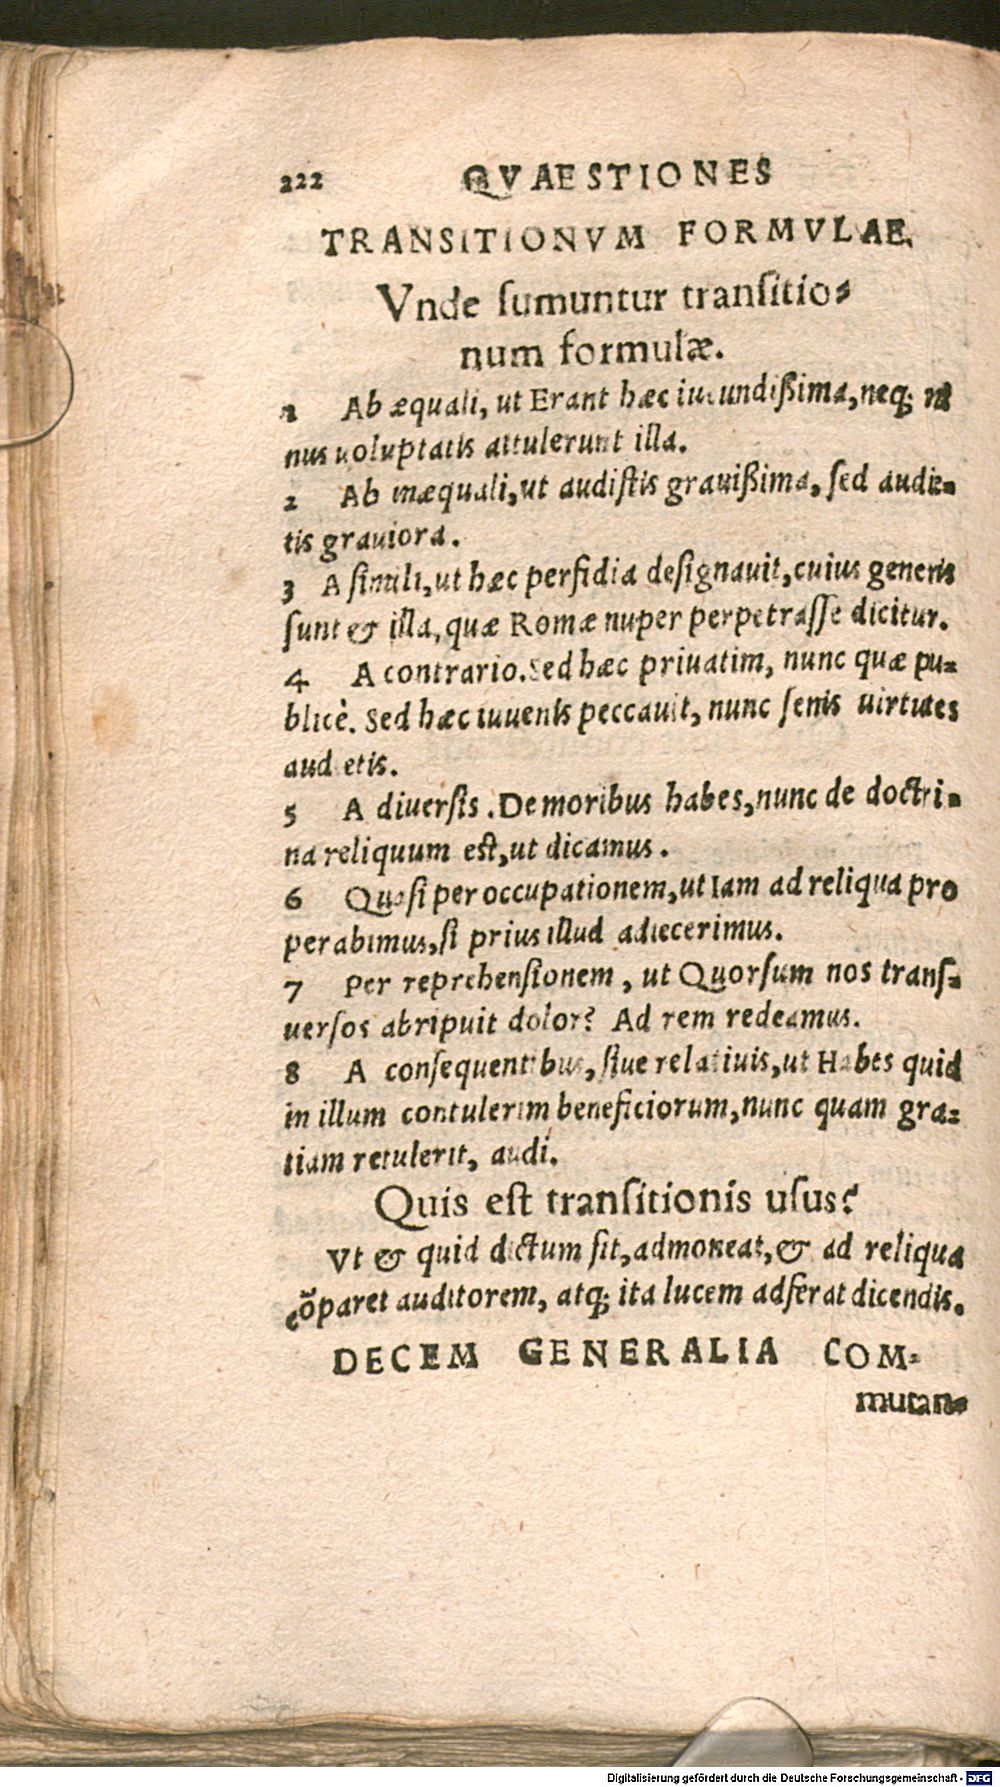 222 QVAESTIONES
TRANSITIONVM FORMVLAE.
Vnde sumuntur transitio-
num formulæ.
1 Ab æquali, ut Erant hæc iucundißima, neq; mi
nus uoluptatis attulerunt illa.
2 Ab inæquali, ut audistis grauißima, sed audie-
tis grauiora.
3 A simili, ut hæc perfidia designauit, cuius generis
sunt & illa, quæ Romæ nuper perpetrasse dicitur.
4 A contrario. Sed hæc priuatim, nunc quæ pu-
blicè. Sed hæc iuuenis peccauit, nunc senis uirtutes
audietis.
5 A diuersis. De moribus habes, nunc de doctri-
na reliquum est, ut dicamus.
6 Quasi per occupationem, ut Iam ad reliqua pro
perabimus, si prius illud adiecerimus.
7 Per reprehensionem, ut Quorsum nos trans-
uersos abripuit dolor? Ad rem redeamus.
8 A consequentibus, siue relatiuis, ut Habes quid
in illum contulerim beneficiorum, nunc quam gra-
tiam retulerit, audi.
Quis est transitionis usus?
Vt & quid dictum sit, admoneat, & ad reliqua
cõparet auditorem, atq; ita lucem adferat dicendis.
DECEM GENERALIA COM-
mutan-
Digitalisierung gefördert durch die Deutsche Forschungsgemeinschaft - DFG